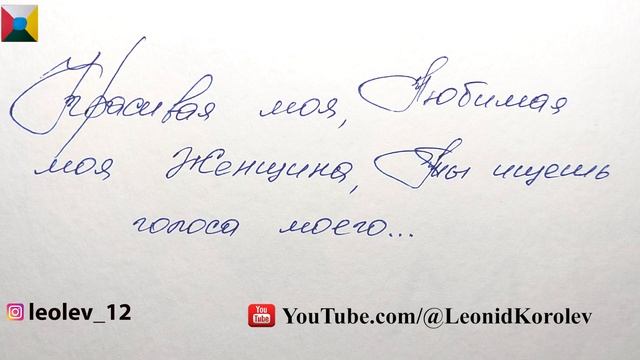 Красивая моя, Любимая
моя Женщина, Ты ищешь
голоса моего...
leolev_12
You
Tube
YouTube.com/@LeonidKorolev